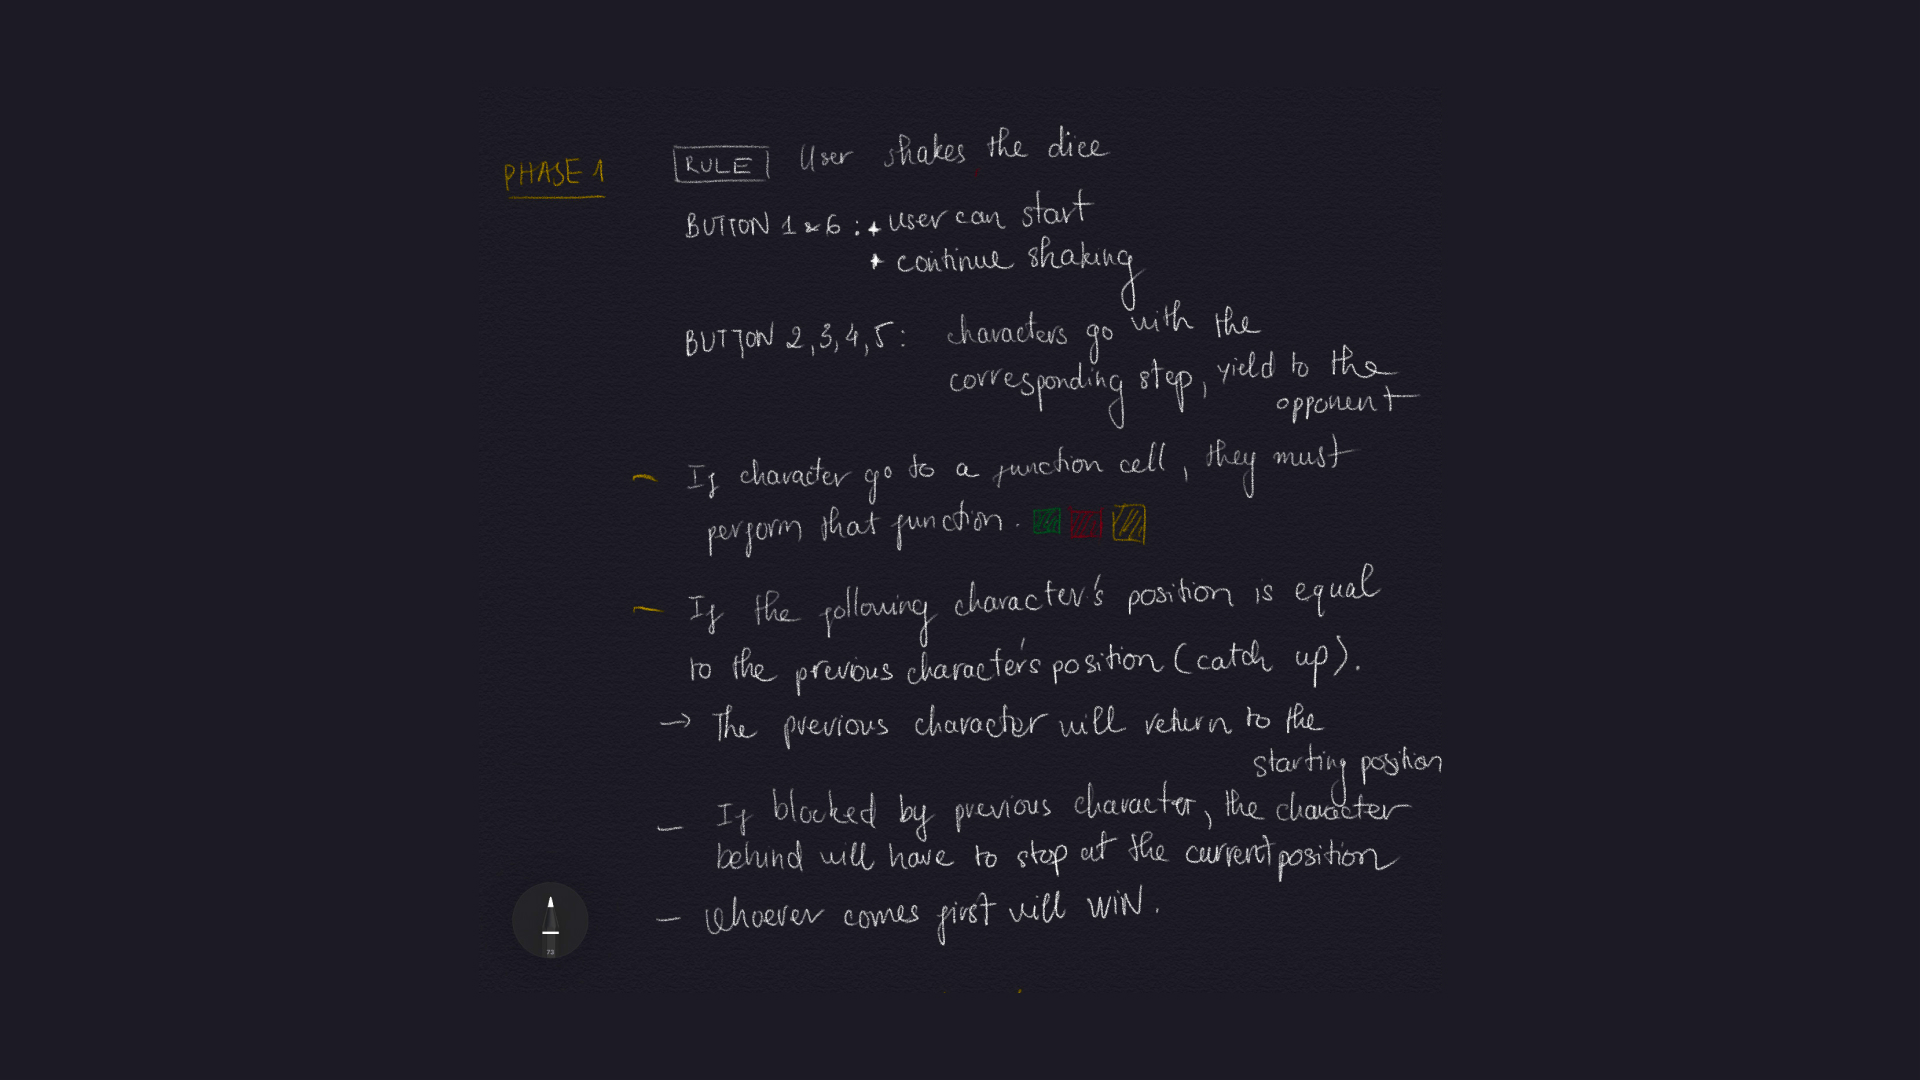 PHASE 1
RULE User shakes the dice
BUTTON 1 & 6 : + user can start
+ continue shaking
BUTTON 2,3,4,5 : characters go with the
corresponding step, yield to the
opponent
- If character go to a function cell, they must
perform that function.
- If the following character's position is equal
to the previous character's position (catch up).
→ The previous character will return to the
starting position
- If blocked by previous character, the character
behind will have to stop at the current position
- Whoever comes first will WIN.
73